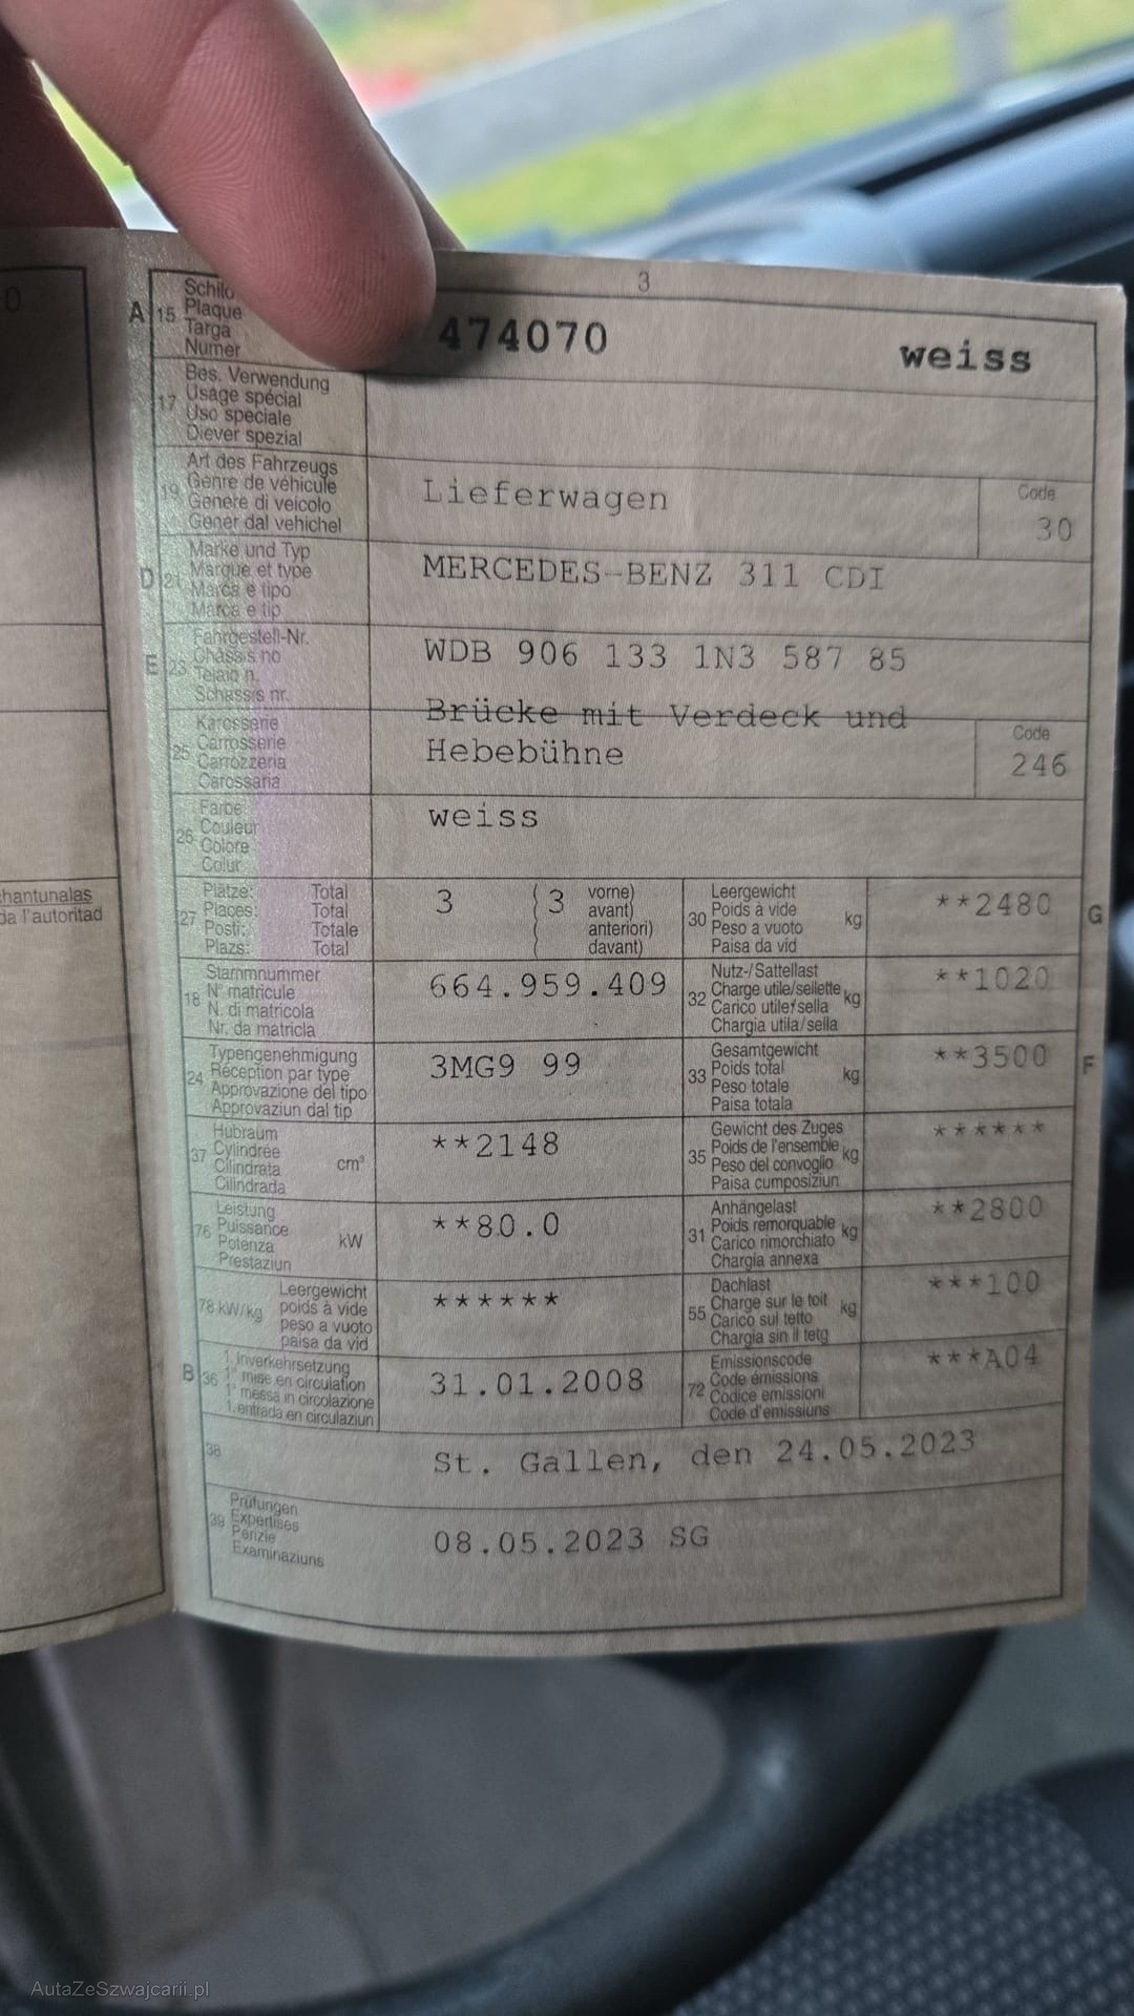 0
3
A 15 Schild
Plaque
Targa
Numer
474070 weiss
17 Bes. Verwendung
Usage spécial
Uso speciale
Diever spezial
19 Art des Fahrzeugs
Genre de véhicule
Genere di veicolo
Gener dal vehichel
Lieferwagen
Code
30
D 21 Marke und Typ
Marque et type
Marca e tipo
Marca e tip
MERCEDES-BENZ 311 CDI
E 23 Fahrgestell-Nr.
Châssis no
Telaio n.
Schassis nr.
WDB 906 133 1N3 587 85
25 Karosserie
Carrosserie
Carrozzeria
Carossaria
Brücke mit Verdeck und
Hebebühne
Code
246
26 Farbe
Couleur
Colore
Colur
weiss
27 Plätze: Total
Places: Total
Posti: Totale
Plazs: Total
3 ( 3 vorne)
avant)
( anteriori)
( davant)
30 Leergewicht
Poids à vide
Peso a vuoto
Paisa da vid
kg
**2480
G
18 Stammnummer
N° matricule
N. di matricola
Nr. da matricla
664.959.409
32 Nutz-/Sattellast
Charge utile/sellette
Carico utile/sella
Chargia utila/sella
kg
**1020
24 Typengenehmigung
Réception par type
Approvazione del tipo
Approvaziun dal tip
3MG9 99
33 Gesamtgewicht
Poids total
Peso totale
Paisa totala
kg
**3500
F
37 Hubraum
Cylindrée
Cilindrata
Cilindrada
cm³
**2148
35 Gewicht des Zuges
Poids de l'ensemble
Peso del convoglio
Paisa cumposiziun
kg
******
76 Leistung
Puissance
Potenza
Prestaziun
kW
**80.0
31 Anhängelast
Poids remorquable
Carico rimorchiato
Chargia annexa
kg
**2800
78 kW/kg
Leergewicht
poids à vide
peso a vuoto
paisa da vid
******
55 Dachlast
Charge sur le toit
Carico sul tetto
Chargia sin il tetg
kg
***100
B 36 1. Inverkehrsetzung
1re mise en circulation
1a messa in circolazione
1. entrada en circulaziun
31.01.2008
72 Emissionscode
Code émissions
Codice emissioni
Code d'emissiuns
***A04
38
St. Gallen, den 24.05.2023
39 Prüfungen
Expertises
Perizie
Examinaziuns
08.05.2023 SG
chantunalas
da l'autoritad
AutaZeSzwajcarii.pl